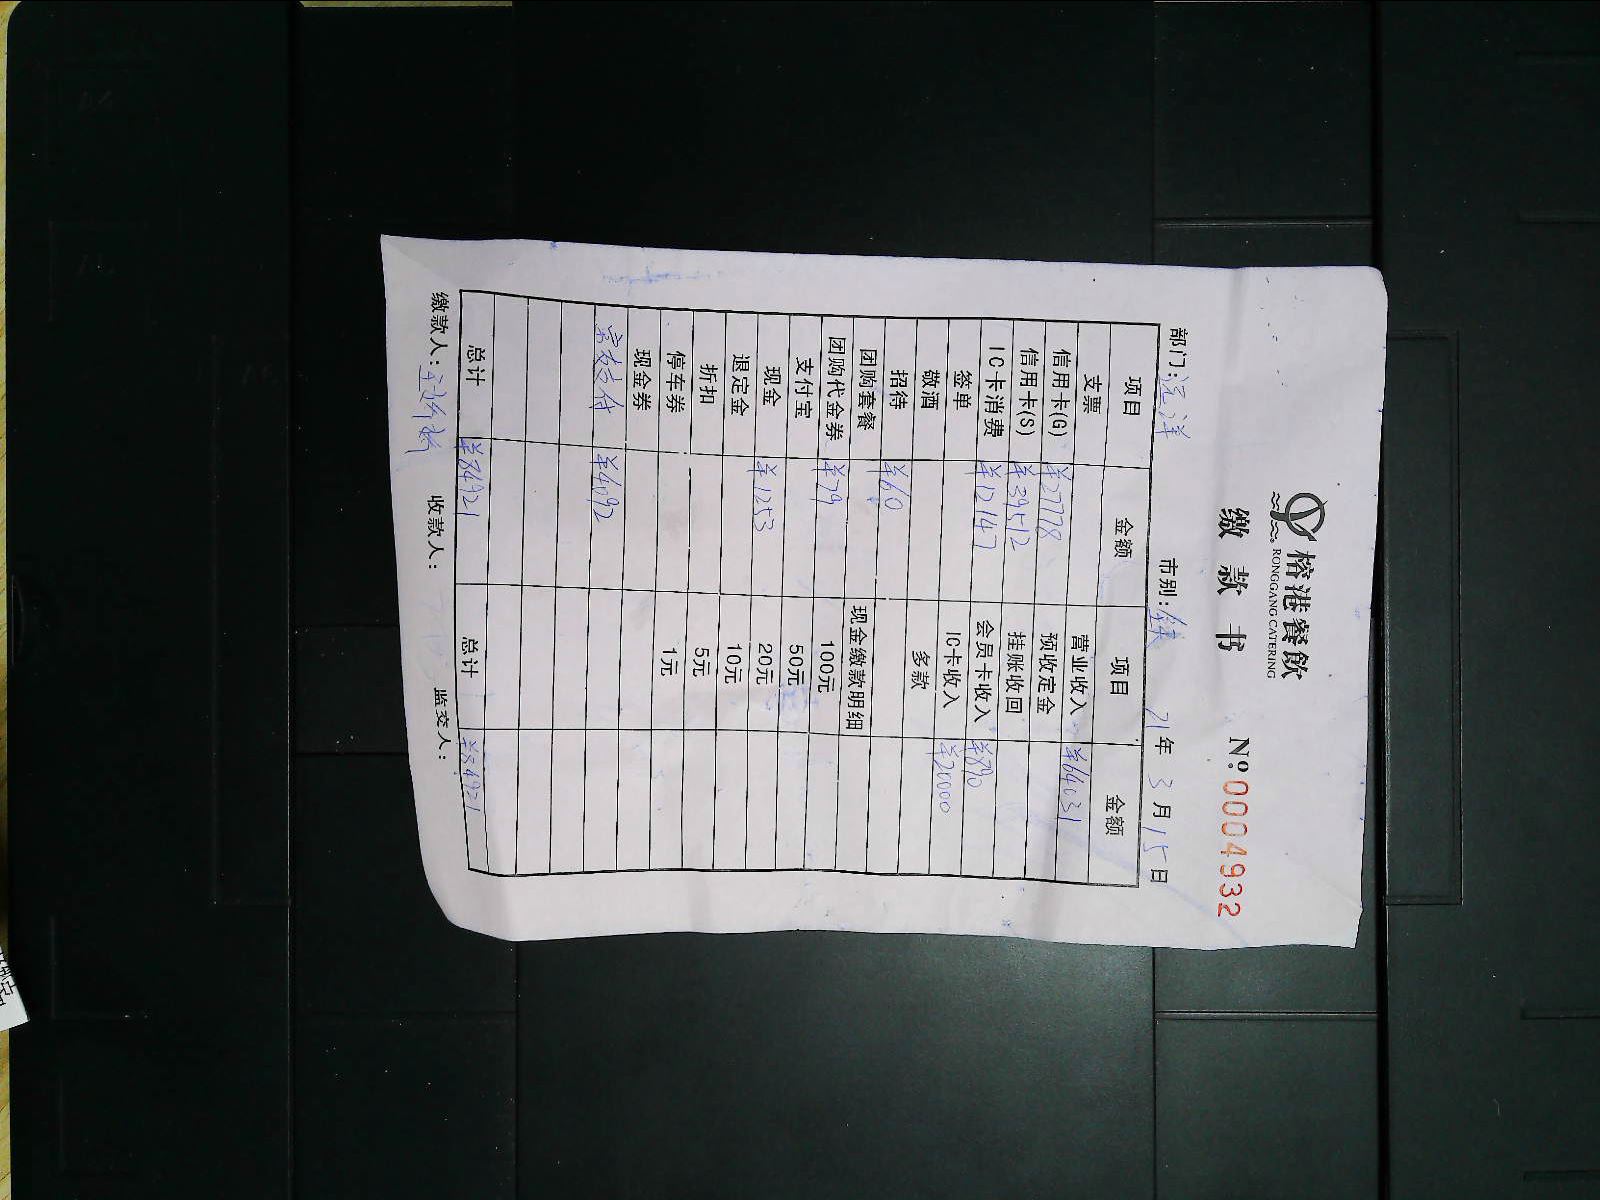 榕港餐飲
RONGGANG CATERING
缴款书 №:0004932
部门:远洋 市别: 21年3月15日
项目 金额 项目 金额
支票 营业收入 ¥64031
信用卡(G) ¥27778 预收定金
信用卡(S) ¥39512 挂账收回
IC卡消费 ¥12147 会员卡收入 ¥890
签单 IC卡收入 ¥20000
敬酒 多款
招待 ¥60
团购套餐 现金缴款明细
团购代金券 ¥79 100元
支付宝 50元
现金 ¥1253 20元
退定金 10元
折扣 5元
停车券 1元
现金券
¥4092
总计 ¥84921 总计 ¥84921
缴款人: 收款人: 监交人: